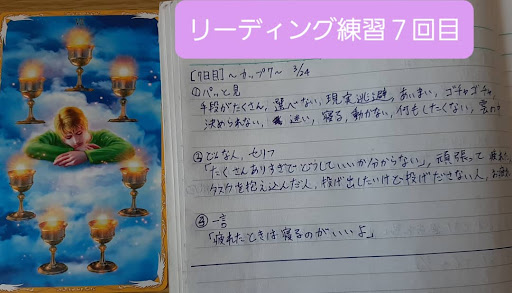 リーディング練習7回目
[7日目]〜カップ7〜 3/24
①パッと見
手段がたくさん,選べない,現実逃避,あいまい,ゴチャゴチャ,
決められない,迷い,寝る,動かない,何もしたくない,
②どんな人,セリフ
「たくさんありすぎてどうしていいか分からない」,頑張って
タスクを抱え込んだ人,投げ出したいけど投げだせない人,
③一言
「疲れたときは寝るのがいいよ」